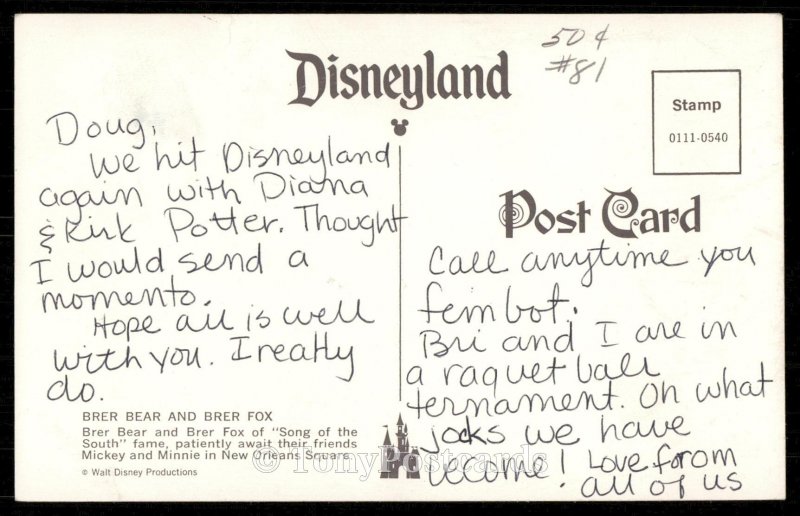 50¢
#81
Disneyland
Stamp
0111-0540
Post Card
Doug,
We hit Disneyland
again with Diana
& Kirk Potter. Thought
I would send a
momento.
Hope all is well
with you. I really
do.
BRER BEAR AND BRER FOX
Brer Bear and Brer Fox of "Song of the
South" fame, patiently await their friends
Mickey and Minnie in New Orleans Square.
© Walt Disney Productions
Call anytime you
fembot.
Bri and I are in
a raquet ball
ternament. Oh what
jocks we have
become! Love forom
all of us
© TonyPostcards